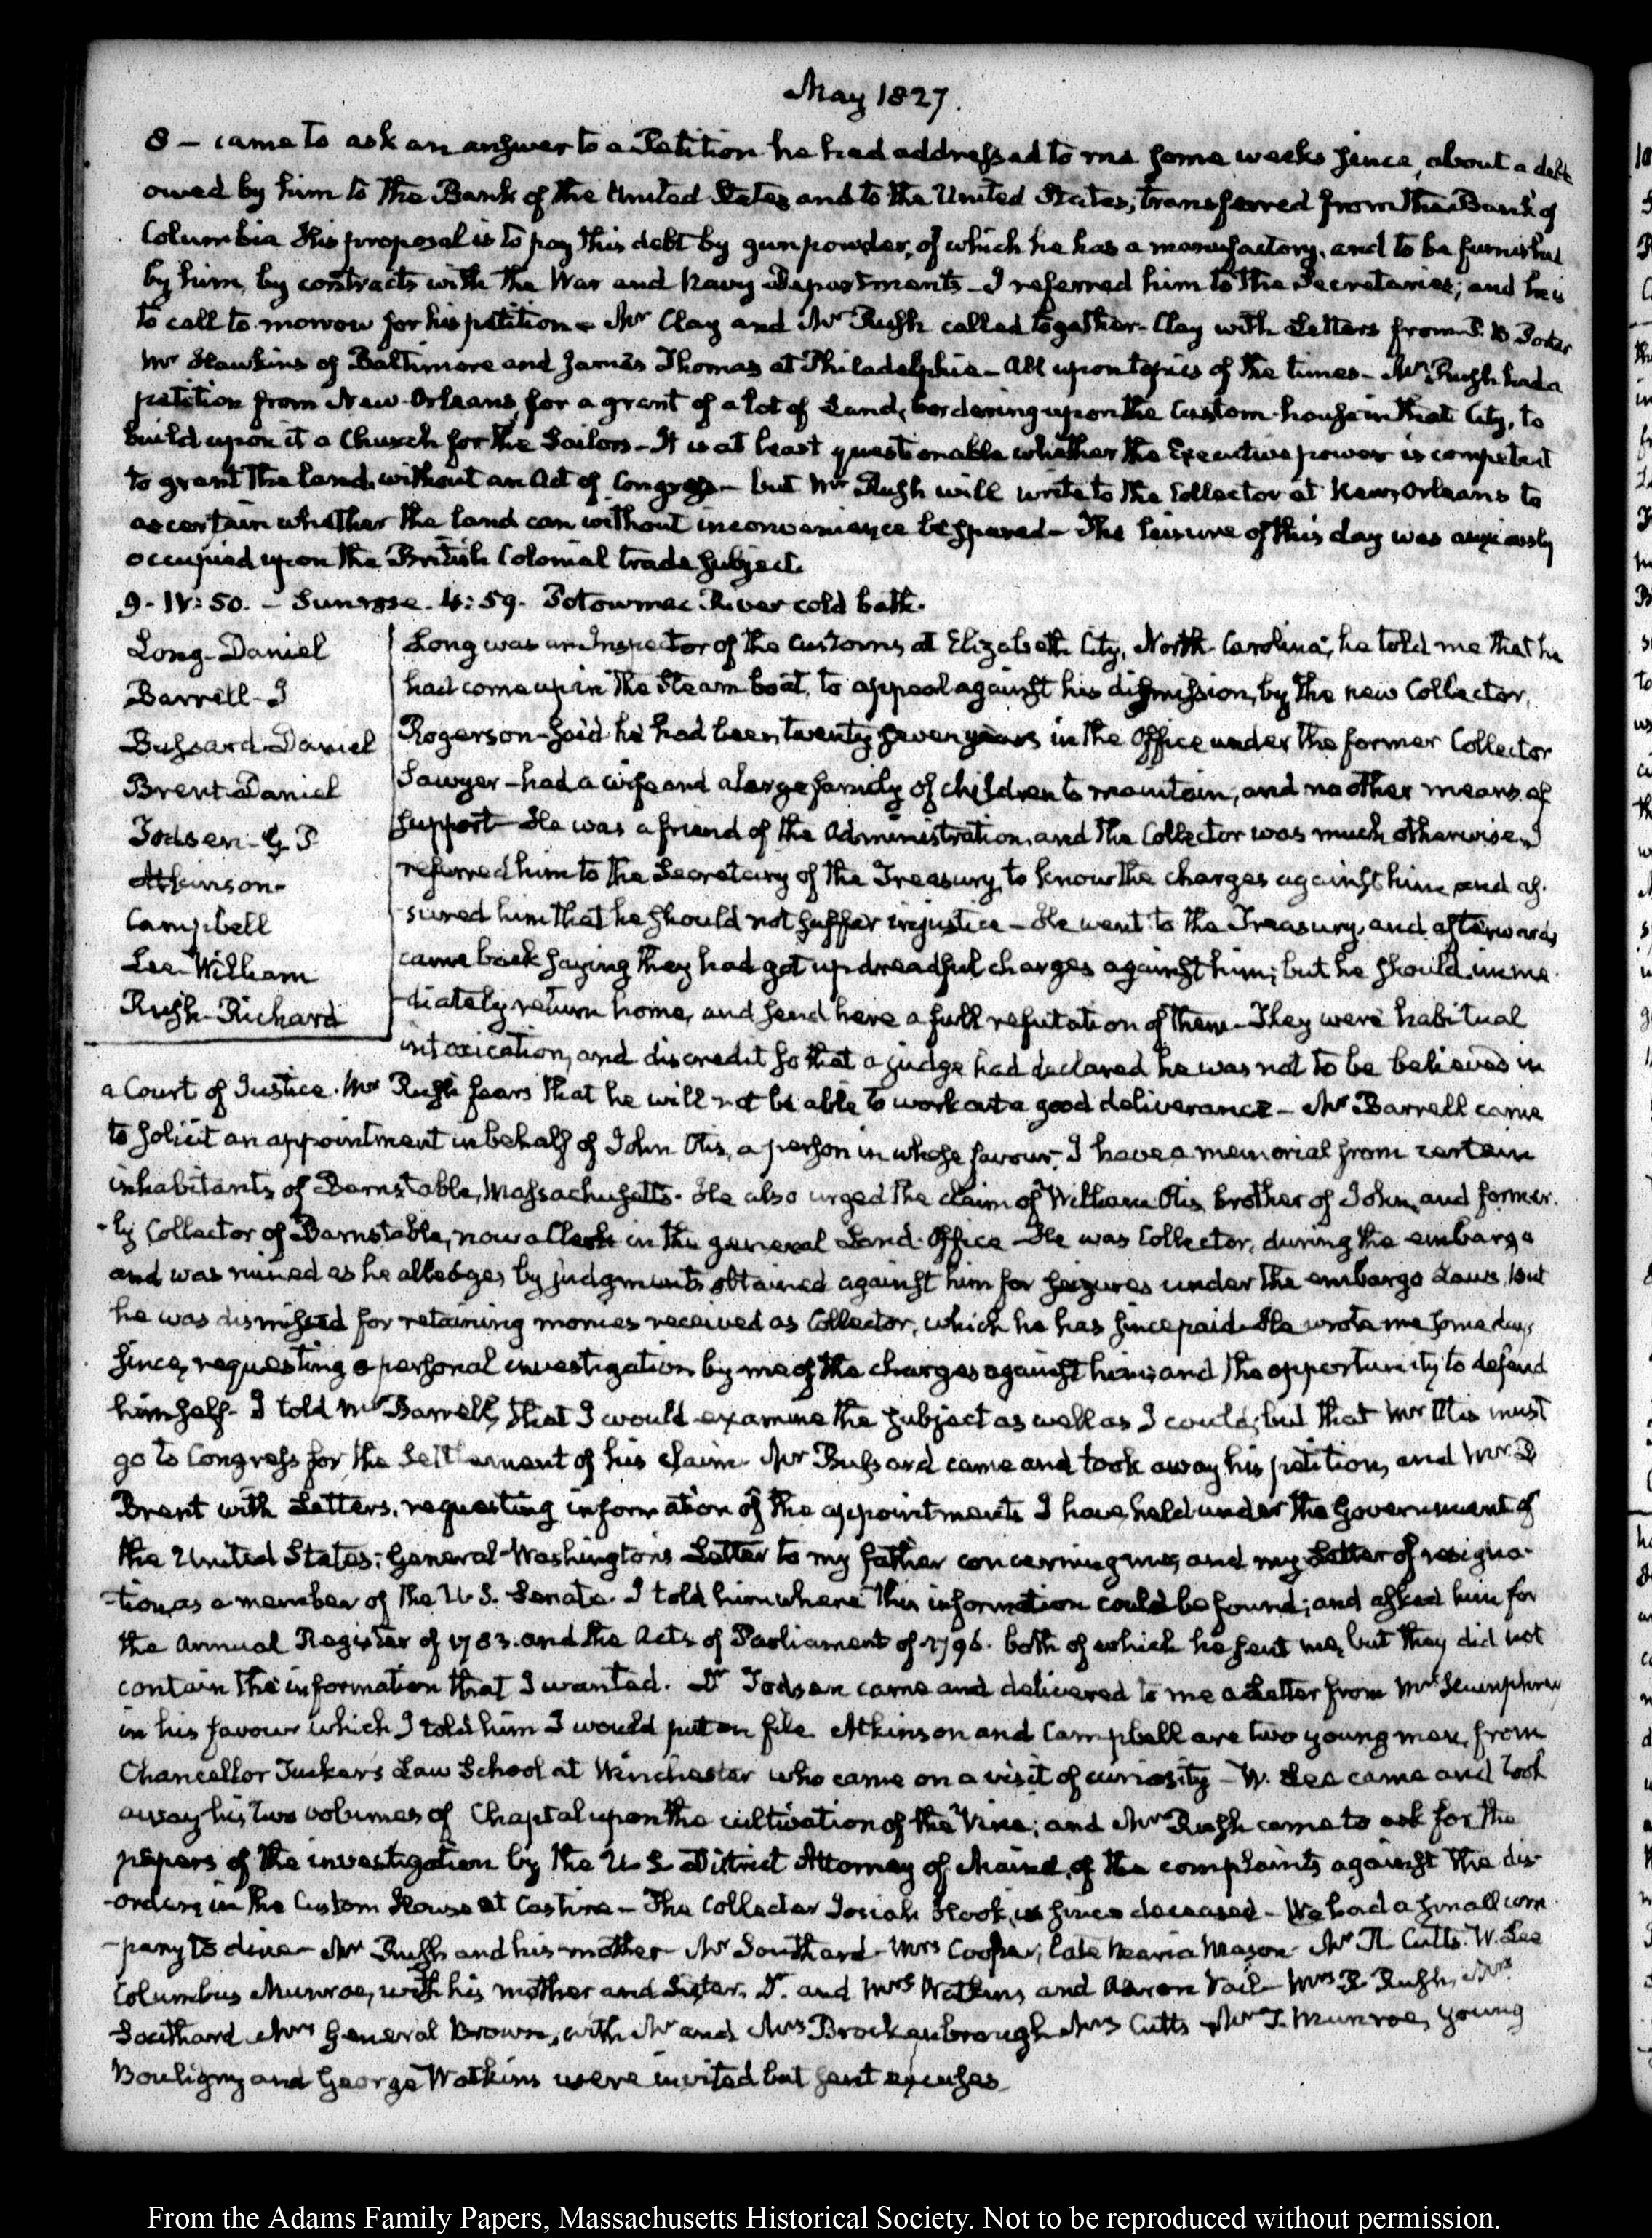 May 1827.
8 – came to ask an answer to a Petition he had addressed to me some weeks since, about a debt
owed by him to the Bank of the United States and to the United States; transferred from the Bank of
Columbia His proposal is to pay this debt by gunpowder, of which he has a manufactory, and to be furnished
by him, by contracts with the War and Navy Departments – I referred him to the Secretaries; and he is
to call to-morrow for his petition – Mr Clay and Mr Rush called together – Clay with Letters from P. B Porter
Mr Hawkins of Baltimore and James Thomas at Philadelphia – All upon topics of the times – Mr Rush had a
petition from New-Orleans, for a grant of a lot of Land, bordering upon the Custom-house in that City, to
build upon it a Church for the Sailors – It is at least questionable whether the Executive power is competent
to grant the land, without an Act of Congress – but Mr Rush will write to the Collector at New Orleans to
ascertain whether the land can without inconvenience be spared – The leisure of this day was anxiously
occupied upon the British Colonial trade subject.
9. IV: 50. – Sun rose. 4:59. Potowmac River cold bath.
Long – Daniel
Barrell – I
Bussard – Daniel
Brent – Daniel
Todsen – G. P
Atkinson –
Campbell
Lee – William
Rush – Richard
Long was an Inspector of the Customs at Elizabeth City, North-Carolina; he told me that he
had come up in the Steam boat, to appeal against his dismission, by the new Collector,
Rogerson – Said he had been twenty seven years in the Office under the former Collector
Sawyer – had a wife and a large family of children to maintain, and no other means of
support – He was a friend of the Administration, and the Collector was much otherwise. I
referred him to the Secretary of the Treasury, to know the charges against him, and as-
sured him that he should not suffer injustice – He went to the Treasury, and afterwards
came back saying they had got up dreadful charges against him; but he should imme-
diately return home, and send here a full refutation of them – They were habitual
intoxication, and discredit so that a judge had declared he was not to be believed in
a Court of Justice. Mr Rush fears that he will not be able to work out a good deliverance – Mr Barrell came
to solicit an appointment in behalf of John Otis, a person in whose favour, I have a memorial from certain
inhabitants of Barnstable, Massachusetts. He also urged the claim of William Otis, brother of John, and former-
-ly Collector of Barnstable, now a Clerk in the general Land-Office – He was Collector, during the embargo
and was ruined as he alledges by judgments obtained against him for seizures under the embargo Laws, but
he was dismissed for retaining monies received as Collector, which he has since paid. He wrote me some days
since, requesting a personal investigation by me of the charges against him; and the opportunity to defend
himself – I told Mr Barrell, that I would examine the subject as well as I could; but that Mr Otis must
go to Congress for the settlement of his claim – Mr Bussard came and took away his petition, and Mr D
Brent with Letters, requesting information of the appointments I have held under the Government of
the United States; General Washington's Letter to my father concerning me; and my Letter of resigna-
-tion, as a member of the U. S. Senate. I told him where this information could be found; and asked him for
the Annual Register of 1783. and the Acts of Parliament of 1796. both of which he sent me, but they did not
contain the information that I wanted. Dr Todsen came and delivered to me a Letter from Mrs Humphreys
in his favour which I told him I would put on file. Atkinson and Campbell are two young men, from
Chancellor Tucker's Law School at Winchester who came on a visit of curiosity – W. Lee came and took
away his two volumes of Chaptal upon the cultivation of the Vine; and Mr Rush came to ask for the
papers of the investigation by the U S District Attorney of Maine, of the complaints against the dis-
-orders in the Custom House at Castine – The Collector Josiah Hook, is since deceased – We had a small com-
-pany to dine – Mr Rush and his mother – Mr Southard – Mrs Cooper, late Maria Mason – Mr R. Cutts. W. Lee
Columbus Munroe, with his mother and Sister, Dr. and Mrs Watkins, and Aaron Vail – Mrs R. Rush, Mrs
Southard Mrs General Brown, with Mr and Mrs Brockenbrough Mrs Cutts – Mr T. Munroe, young
Bouligny and George Watkins were invited but sent excuses
From the Adams Family Papers, Massachusetts Historical Society. Not to be reproduced without permission.